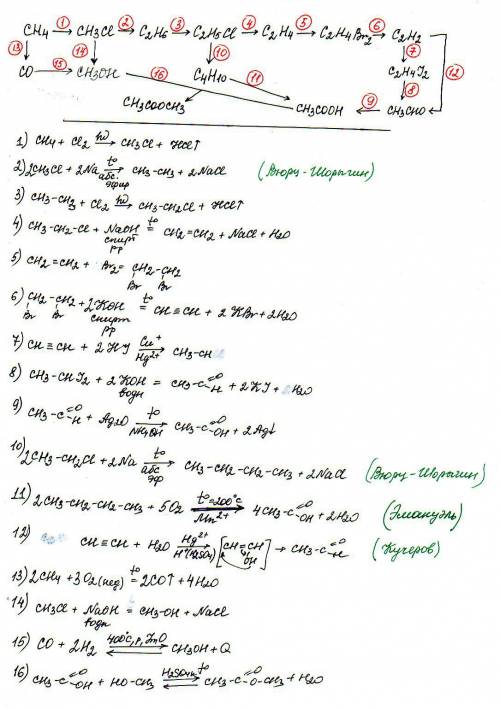 CH4 →(1) CH3Cl →(2) C2H6 →(3) C2H5Cl →(4) C2H4 →(5) C2H4Br2 →(6) C2H2
(13) (14) (10) (7) (12)
CO →(15) CH3OH (16) C4H10 (11) C2H4J2
(8)
CH3COOCH3 CH3COOH ←(9) CH3CHO
1) CH4 + Cl2 →(hν) CH3Cl + HCl↑
2) 2CH3Cl + 2Na →(t°, абс. эфир) CH3-CH3 + 2NaCl (Вюрц-Шорыгин)
3) CH3-CH3 + Cl2 →(hν) CH3-CH2Cl + HCl↑
4) CH3-CH2-Cl + NaOH (спирт рр) =(t°) CH2=CH2 + NaCl + H2O
5) CH2=CH2 + Br2 = CH2-CH2
Br Br
6) CH2-CH2 + 2KOH (спирт рр) =(t°) CH≡CH + 2KBr + 2H2O
Br Br
7) CH≡CH + 2HJ →(Cu+, Hg2+) CH3-CH
8) CH3-CHJ2 + 2KOH (водн) = CH3-C(=O)H + 2KJ + H2O
9) CH3-C(=O)H + Ag2O →(t°, NH4OH) CH3-C(=O)OH + 2Ag↓
10) 2CH3-CH2Cl + 2Na →(t°, абс эф) CH3-CH2-CH2-CH3 + 2NaCl (Вюрц-Шорыгин)
11) 2CH3-CH2-CH2-CH3 + 5O2 →(t°=200°C, Mn2+) 4CH3-C(=O)OH + 2H2O (Эмануэль)
12) CH≡CH + H2O →(Hg2+, H+(H2SO4)) [CH2=CH OH] → CH3-C(=O)H (Кучеров)
13) 2CH4 + 3O2(нед) =(t°) 2CO↑ + 4H2O
14) CH3Cl + NaOH (водн) = CH3-OH + NaCl
15) CO + 2H2 ⇄(400°C, p, ZnO) CH3OH + Q
16) CH3-C(=O)OH + HO-CH3 ⇄(H2SO4к, t°) CH3-C(=O)O-CH3 + H2O